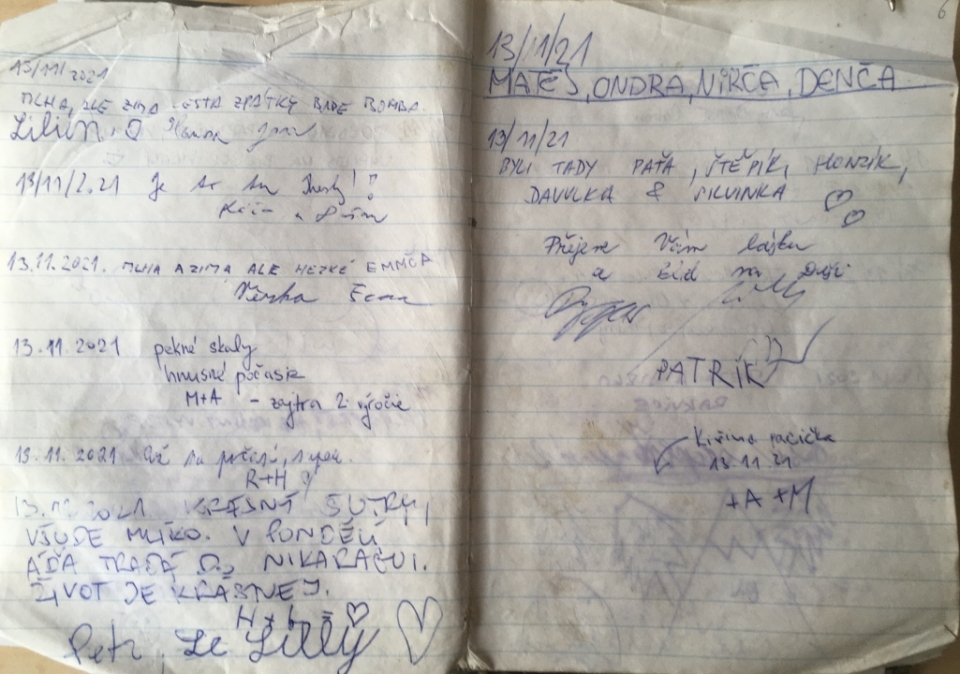 13/11/2021
MLHA, ALE ZIMA, CESTA ZPÁTKY BUDE BOMBA.
Lilien
13/11/2021 Je to tu
13.11.2021. MLHA A ZIMA ALE HEZKÉ EMMČA
Verka
13.11.2021 pekné skaly
hnusné počasie
M+A - zajtra 2. výročie
13.11.2021
R+H
13.11.2021 KRÁSNÝ ŠUTRY,
VŠUDE MLÍKO. V PONDĚLÍ
ÁĎA TRADÁ DO NIKARAGUI.
ŽIVOT JE KRÁSNEJ.
Petr, Le Lilly
6
13/11/21
MATĚJ, ONDRA, NIRČA, DENČA
13/11/21
BYLI TADY PAŤA, ŠTĚPÍK, HONZÍK,
DAVULKA & SILVINKA
Přejem Vám lásku
a klid na Duši
PATRIK
Kiřina pacička
13 11 21
+A +M